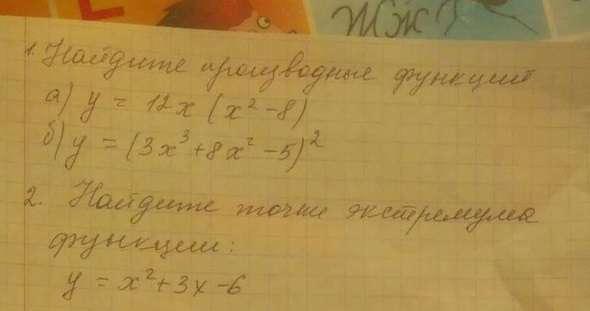 ЖЖ
1. Найдите производные функций
а) y = 12x (x² - 8)
б) y = (3x³ + 8x² - 5)²
2. Найдите точки экстремума
функции:
y = x² + 3x - 6